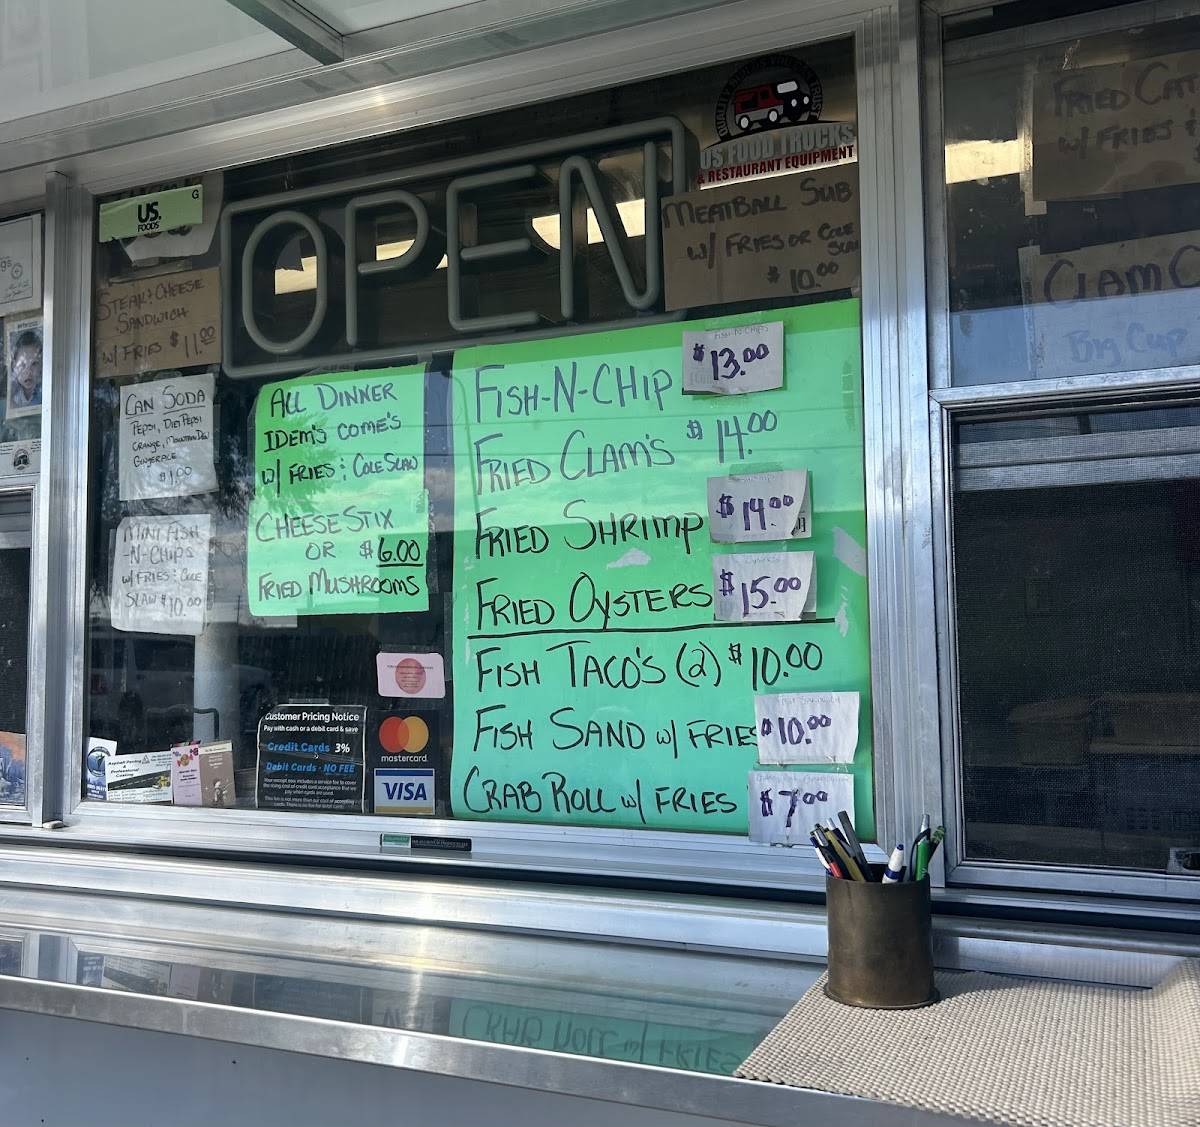 QUALITY TRUCKS YOU CAN TRUST
US FOOD TRUCKS
& RESTAURANT EQUIPMENT
US.
FOODS
G
OPEN
MEATBALL SUB
W/ FRIES OR COLE
SLAW
$10.00
STEAK & CHEESE
SANDWICH
W/ FRIES $11.00
CAN SODA
PEPSI, DIET PEPSI
ORANGE, MOUNTAIN DEW
GINGERALE
$1.00
MINI FISH
-N-CHIPS
W/ FRIES & COLE
SLAW $10.00
ALL DINNER
IDEM'S COME'S
W/ FRIES & COLE SLAW
CHEESE STIX
OR $6.00
FRIED MUSHROOMS
FISH-N-CHIPS
FISH-N-CHIP $13.00
FRIED CLAM'S $14.00
FRIED SHRIMP $14.00
FRIED OYSTERS $15.00
FISH TACO'S (2) $10.00
FISH SAND W/ FRIES $10.00
CRAB ROLL W/ FRIES $7.00
Customer Pricing Notice
Pay with cash or a debit card & save
Credit Cards 3%
Debit Cards - NO FEE
mastercard
VISA
Asphalt Paving &
Professional
FRIED CAT
W/ FRIES &
CLAM C
Big Cup